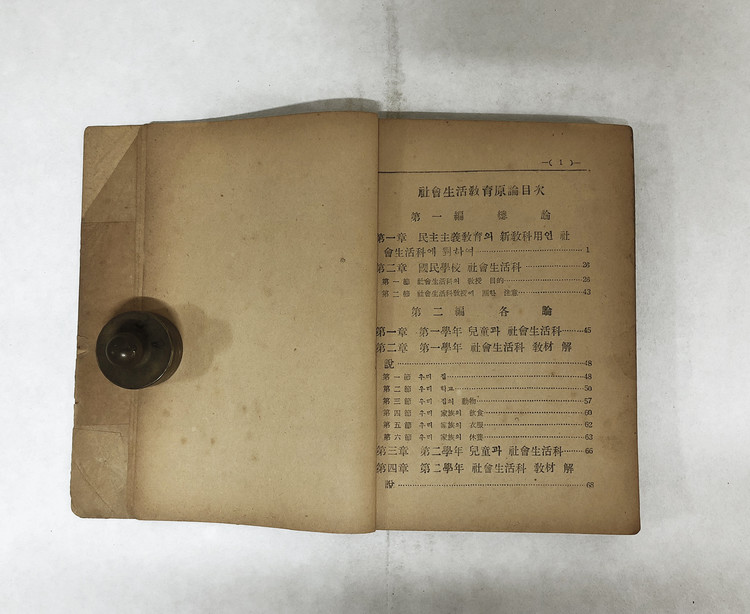 —( 1 )—
社會生活敎育原論目次
第一編 總論
第一章 民主主義敎育의 新敎科用인 社
會生活科에 對하여 1
第二章 國民學校 社會生活科
第一節 社會生活科의 敎授 目的
第二節 社會生活科敎授에 注意 43
第二編 各論
第一章 第一學年 兒童과 社會生活科 45
第二章 第一學年 社會生活科 敎材 解
說 48
第一節 우리 집 48
第二節 우리 학교 50
第三節 우리 집의 動物 57
第四節 우리 家族의 飮食 60
第五節 우리 家族의 衣服 62
第六節 우리 家族의 休養 63
第三章 第二學年 兒童과 社會生活科 66
第四章 第二學年 社會生活科 敎材 解
說 68